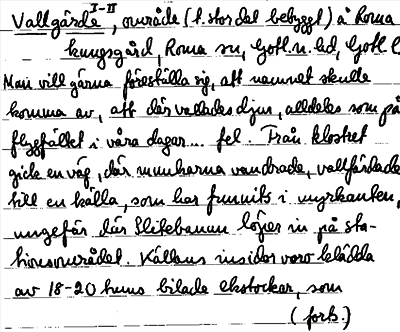 Vallgårde I-II, område (t. stor del bebyggt) å Roma
kungsgård, Roma sn, Gotl. n. hd, Gotl. l
Man vill gärna föreställa sig, att namnet skulle
komma av, att där vallades djur, alldeles som på
flygfältet i våra dagar... fel. Från klostret
gick en väg, där munkarna vandrade, vallfärdade
till en källa, som har funnits i myrkanten,
ungefär där Slitebanan löper in på sta-
tionsområdet. Källans insidor voro klädda
av 18-20 tums bilade ekstockar, som
(forts.)